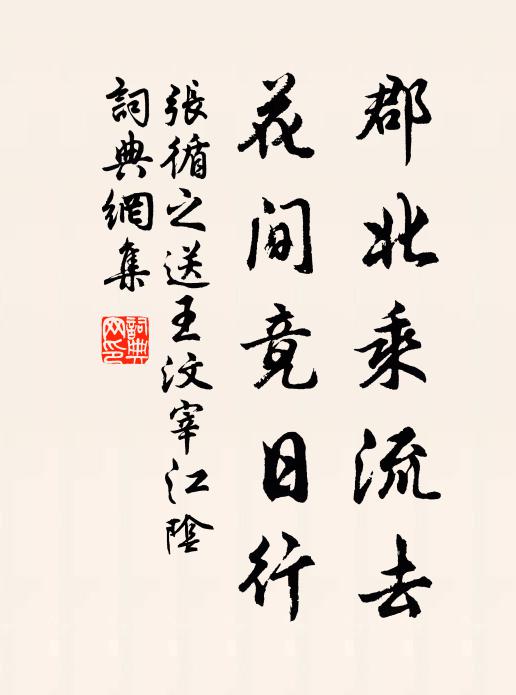 郡北乘流去
花間竟日行
張循之送王汶宰江陰
詞典網集
詞典網印